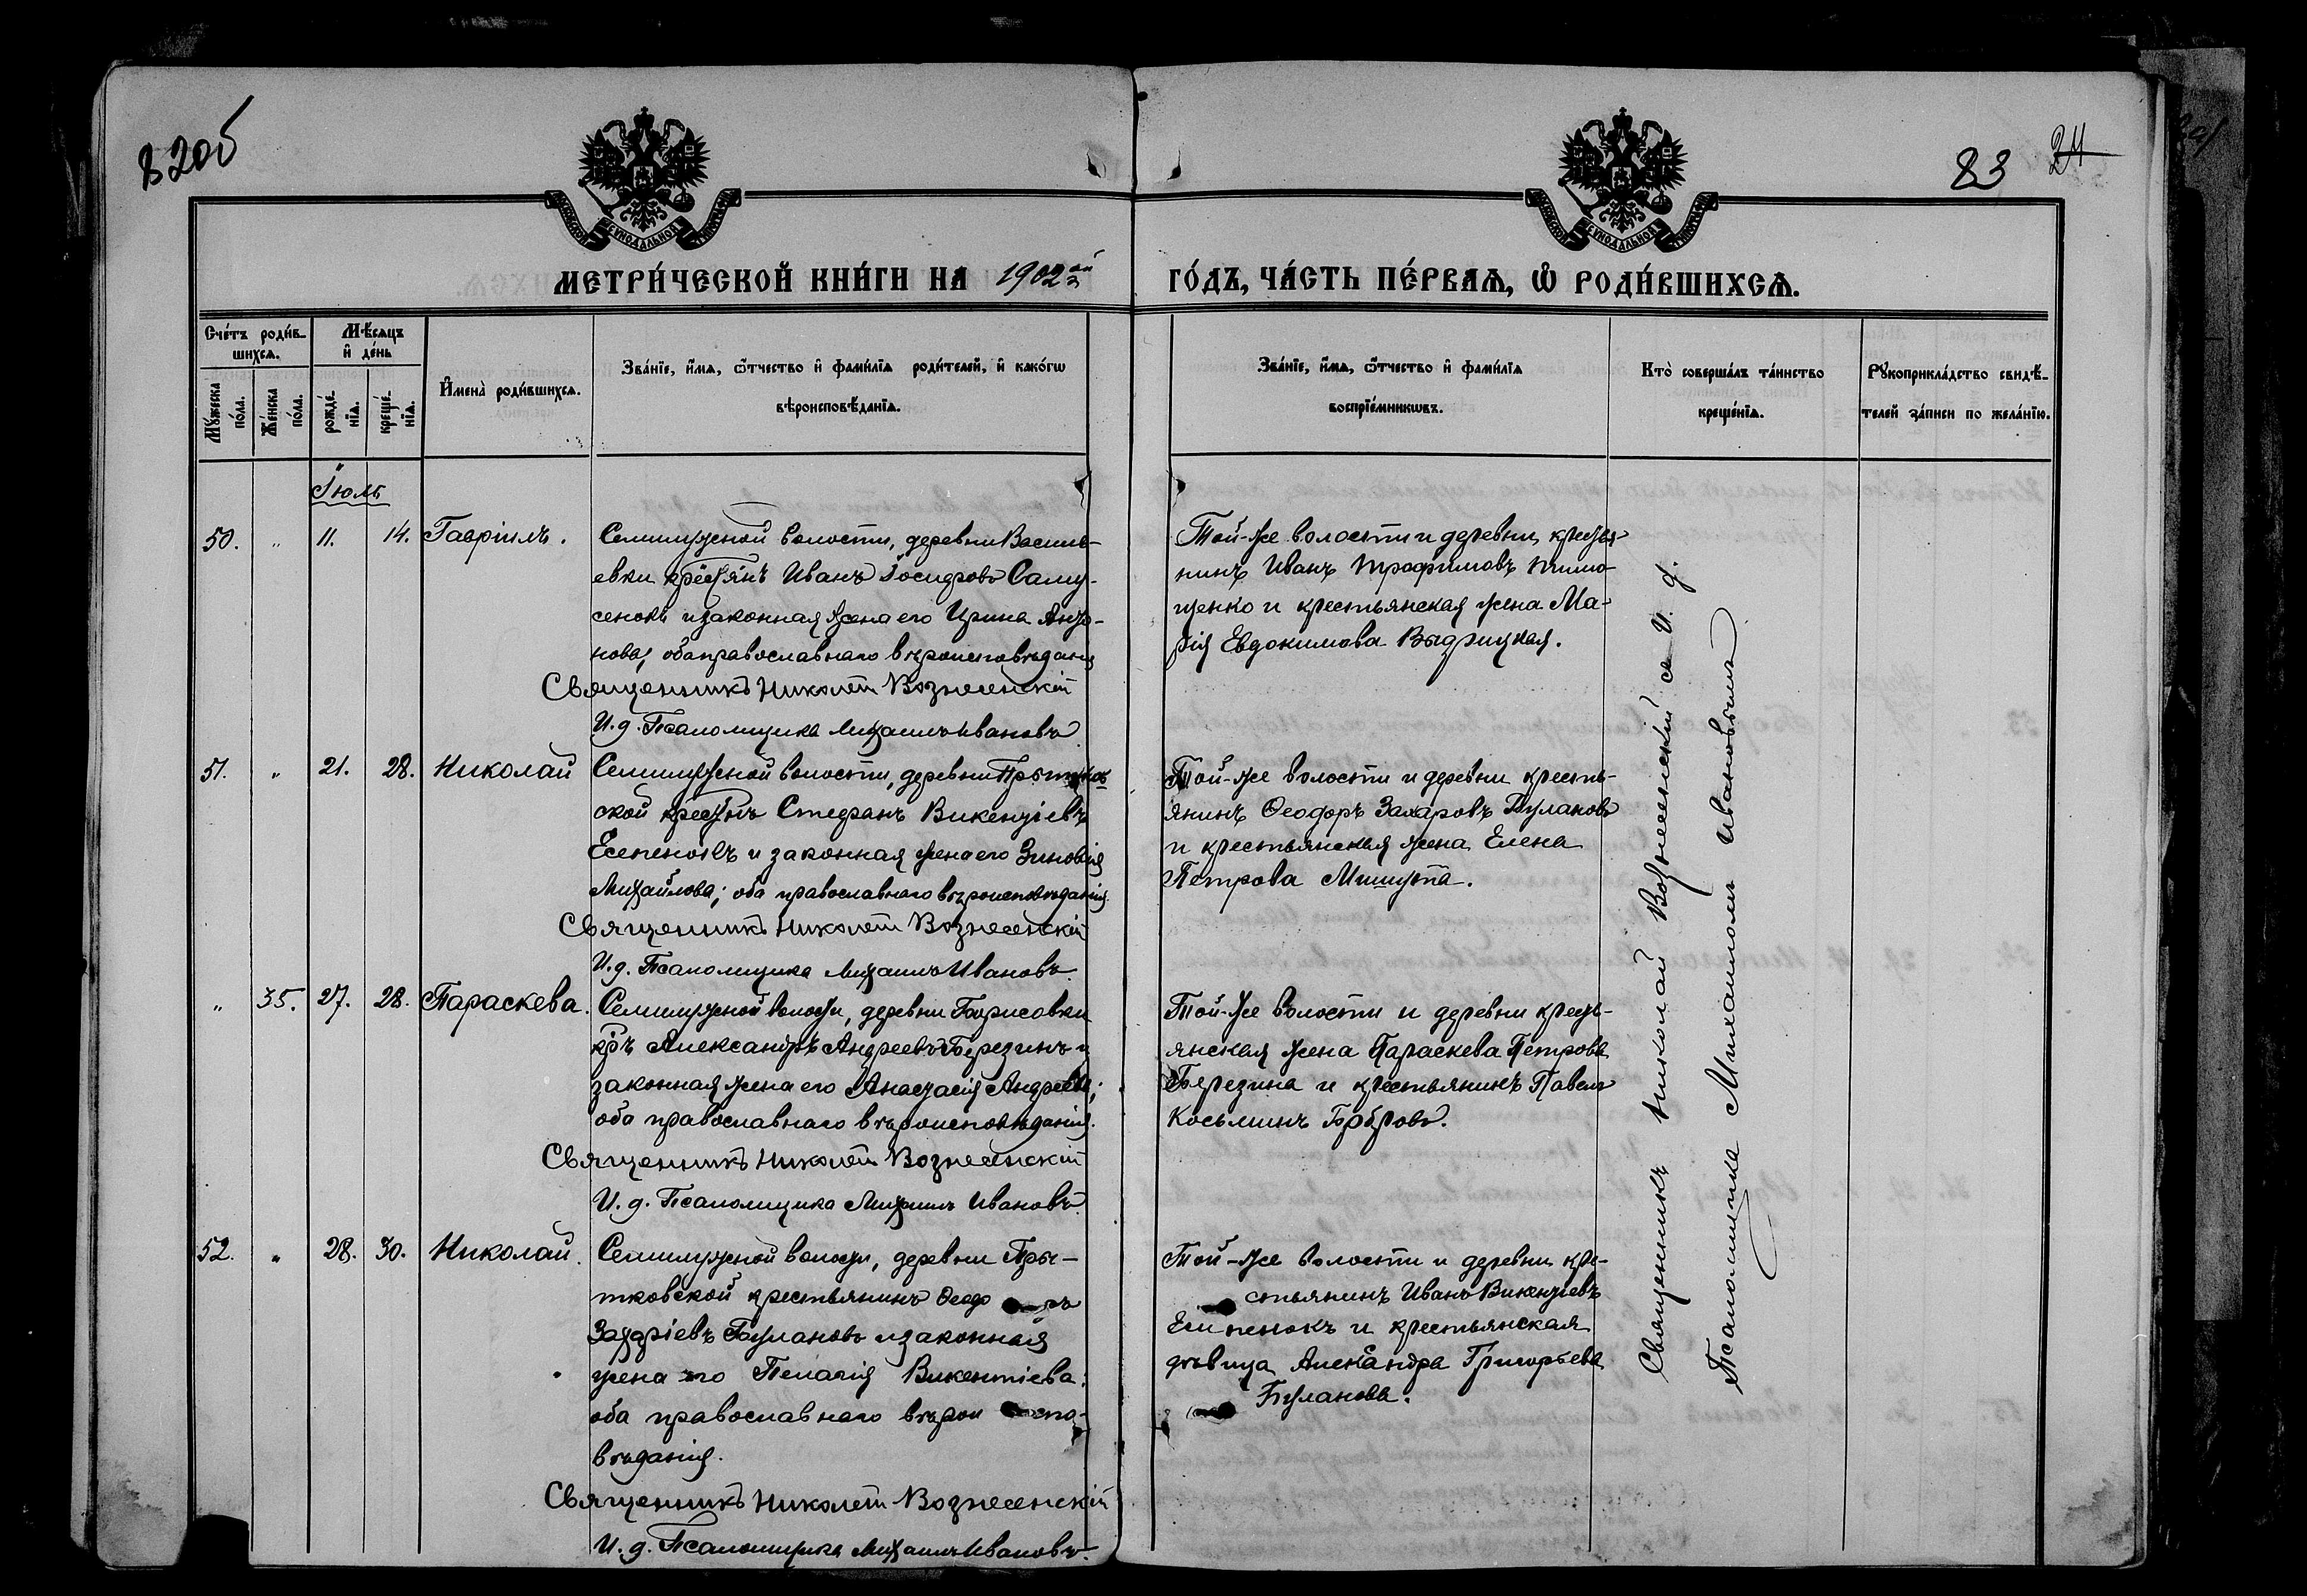 82об
83
24
МЕТРИ́ЧЕСКОЙ КНИ́ГИ НА 1902ой
ГО́ДЪ, ЧА́СТЬ ПЕ́РВАѦ, Ѡ҆ РОДИ́ВШИХСѦ.
Сче́тъ роди́в-
шихсѧ.
Мѣ́сѧцъ
и҆ де́нь
Мꙋ́жеска
по́ла.
Же́нска
по́ла.
рожде́-
нїѧ.
креще́-
нїѧ.
И҆мена̀ роди́вшихсѧ.
Зва́нїе, и҆́мѧ, ѻ҆́тчество и҆ фами́лїѧ роди́телей, и҆ како́гѡ
вѣроисповѣ́данїѧ.
Зва́нїе, и҆́мѧ, ѻ҆́тчество и҆ фами́лїѧ
воспрїе́мникѡвъ.
Кто̀ соверша́лъ та́инство
креще́нїѧ.
Рꙋкоприкла́дство свидѣ́-
телей за́писи по жела́нїю.
Іюль
50. " 11. 14. Гавріилъ.
Семилужной волости, деревни Василь-
евки крестянъ Иванъ Іосифовъ Саму-
сенокъ и законная жена его Ирина
нова, оба православнаго вѣроисповѣданія
Священникъ Николай Вознесенскій
И.д. Псаломщика Михаилъ Ивановъ
Той-же волости и деревни, крестья-
нинъ Иванъ Трофимовъ Тимо-
щенко и крестьянская жена Ма-
рія Евдокимова Выдрицкая.
51. " 21. 28. Николай
Семилужной волости, деревни Прытков-
ской крестнъ Стефанъ Викентіевъ
Есепенокъ и законная жена его Зиновія
Михайлова; оба православнаго вѣроисповѣданія.
Священникъ Николай Вознесенскій
И.д. Псаломщика Михаилъ Ивановъ
Той-же волости и деревни кресть-
янинъ Ѳеодоръ Захаровъ Булановъ
и крестьянская жена Елена
Петрова Мишута.
" 35. 27. 28. Параскева.
Семилужной волости, деревни Борисовки
кр-ъ Александръ Андреевъ Березинъ и
законная жена его Анастасія Андреева;
оба православнаго вѣроисповѣданія.
Священникъ Николай Вознесенскій
И.д. Псаломщика Михаилъ Ивановъ
Той-же волости и деревни крест-
янская жена Параскева Петрова
Березина и крестьянинъ Павелъ
Косьминъ Бобровъ.
52. " 28. 30. Николай.
Семилужной волости, деревни Пры-
тковской крестьянинъ Ѳеодоръ
Захаріевъ Булановъ и законная
жена его Пелагія Викентіева;
оба православнаго вѣроиспо-
вѣданія.
Священникъ Николай Вознесенскій
И.д. Псаломщика Михаилъ Ивановъ.
Той-же волости и деревни, кре-
стьянинъ Иванъ Викентіевъ
Есипенокъ и крестьянская
дѣвица Александра Григорьева
Буланова.
Священникъ Николай Вознесенскій съ И. д.
Псаломщика Михаиломъ Ивановымъ